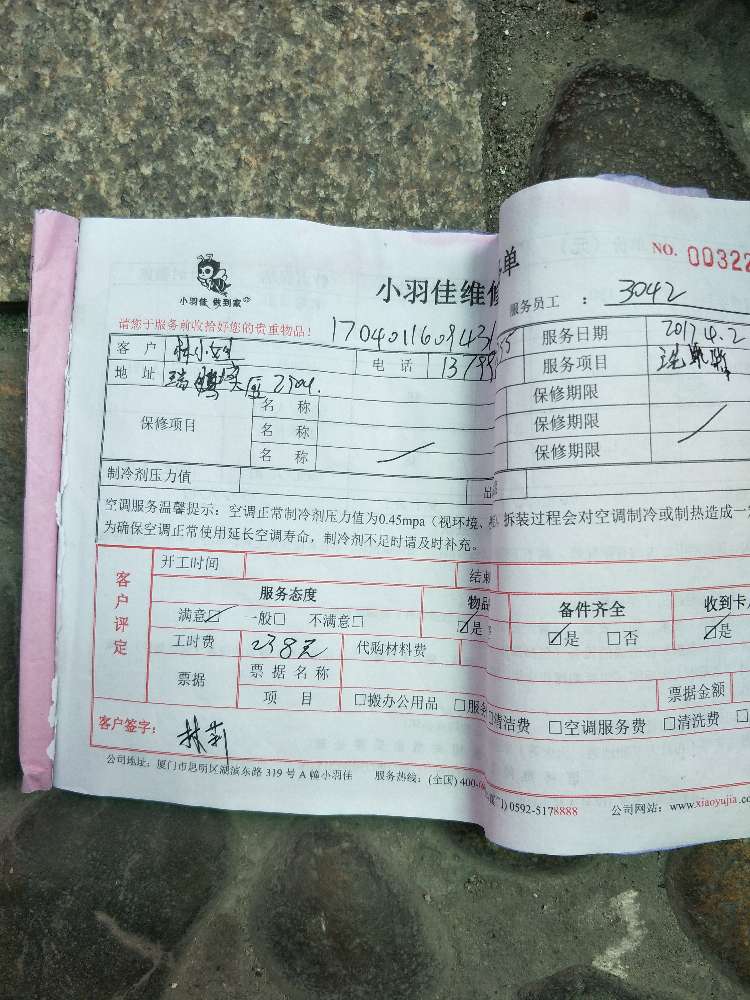 小羽佳 做到家
小羽佳维修 单
NO. 00322
服务员工 : 3042
请您于服务前收拾好您的贵重物品!
客户 林小姐 电话 服务日期 2017.4.2
地址 服务项目
保修项目 名称 保修期限
名称 保修期限
名称 保修期限
制冷剂压力值
空调服务温馨提示:空调正常制冷剂压力值为0.45mpa(视环境、 拆装过程会对空调制冷或制热造成一
为确保空调正常使用延长空调寿命,制冷剂不足时请及时补充。
客户评定
开工时间 结束
服务态度 物品 备件齐全 收到卡
满意☑ 一般□ 不满意□ ☑是 ☑是 □否 ☑是
工时费 238元 代购材料费
票据 票据名称 票据金额
项目 □搬办公用品 □服务 清洁费 □空调服务费 □清洗费
客户签字: 林莉
公司地址:厦门市思明区湖滨东路 319 号 A 幢小羽佳 服务热线:(全国) 400- 0592-5178888 公司网站:www.xiaoyujia.co